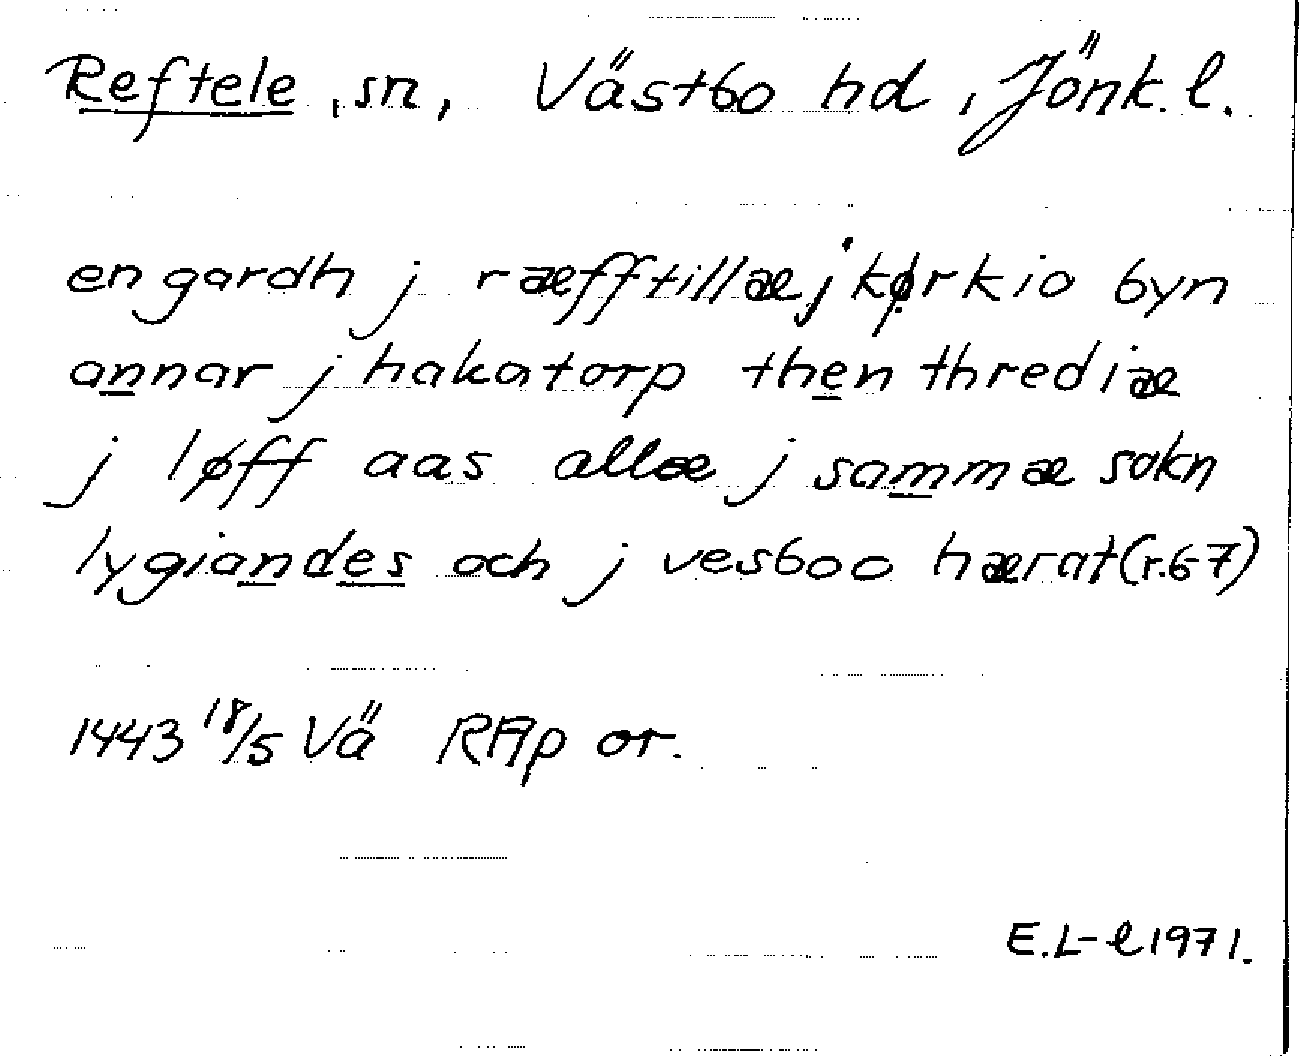 Reftele, sn, Västbo hd, Jönk. l.
en gardh j ræfftillæ j kørkio byn
annar j hakatorp then thrediæ
j løff aas allæ j sammæ sokn
lygiandes och j vesboo hærat (r.6-7)
1443 18/5 Vä RAp or.
E.L-l 1971.